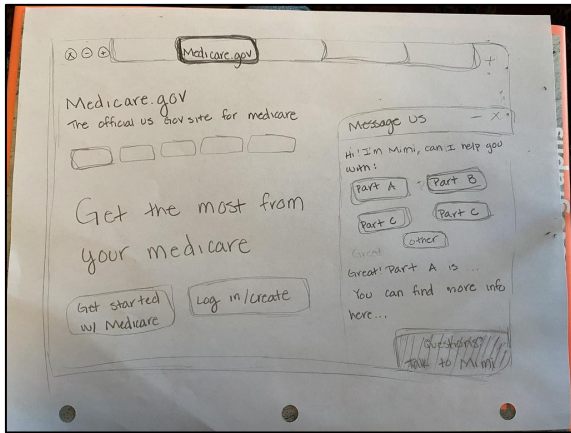 Medicare.gov
+
Medicare.gov
The official US Gov site for medicare
Get the most from
your medicare
Get started
w/ Medicare
Log in/create
Message us - x
Hi! I'm Mimi, can I help you
with:
Part A
Part B
Part C
Part C
other
Great
Great! Part A is ...
You can find more info
here...
Questions?
Talk to Mimi